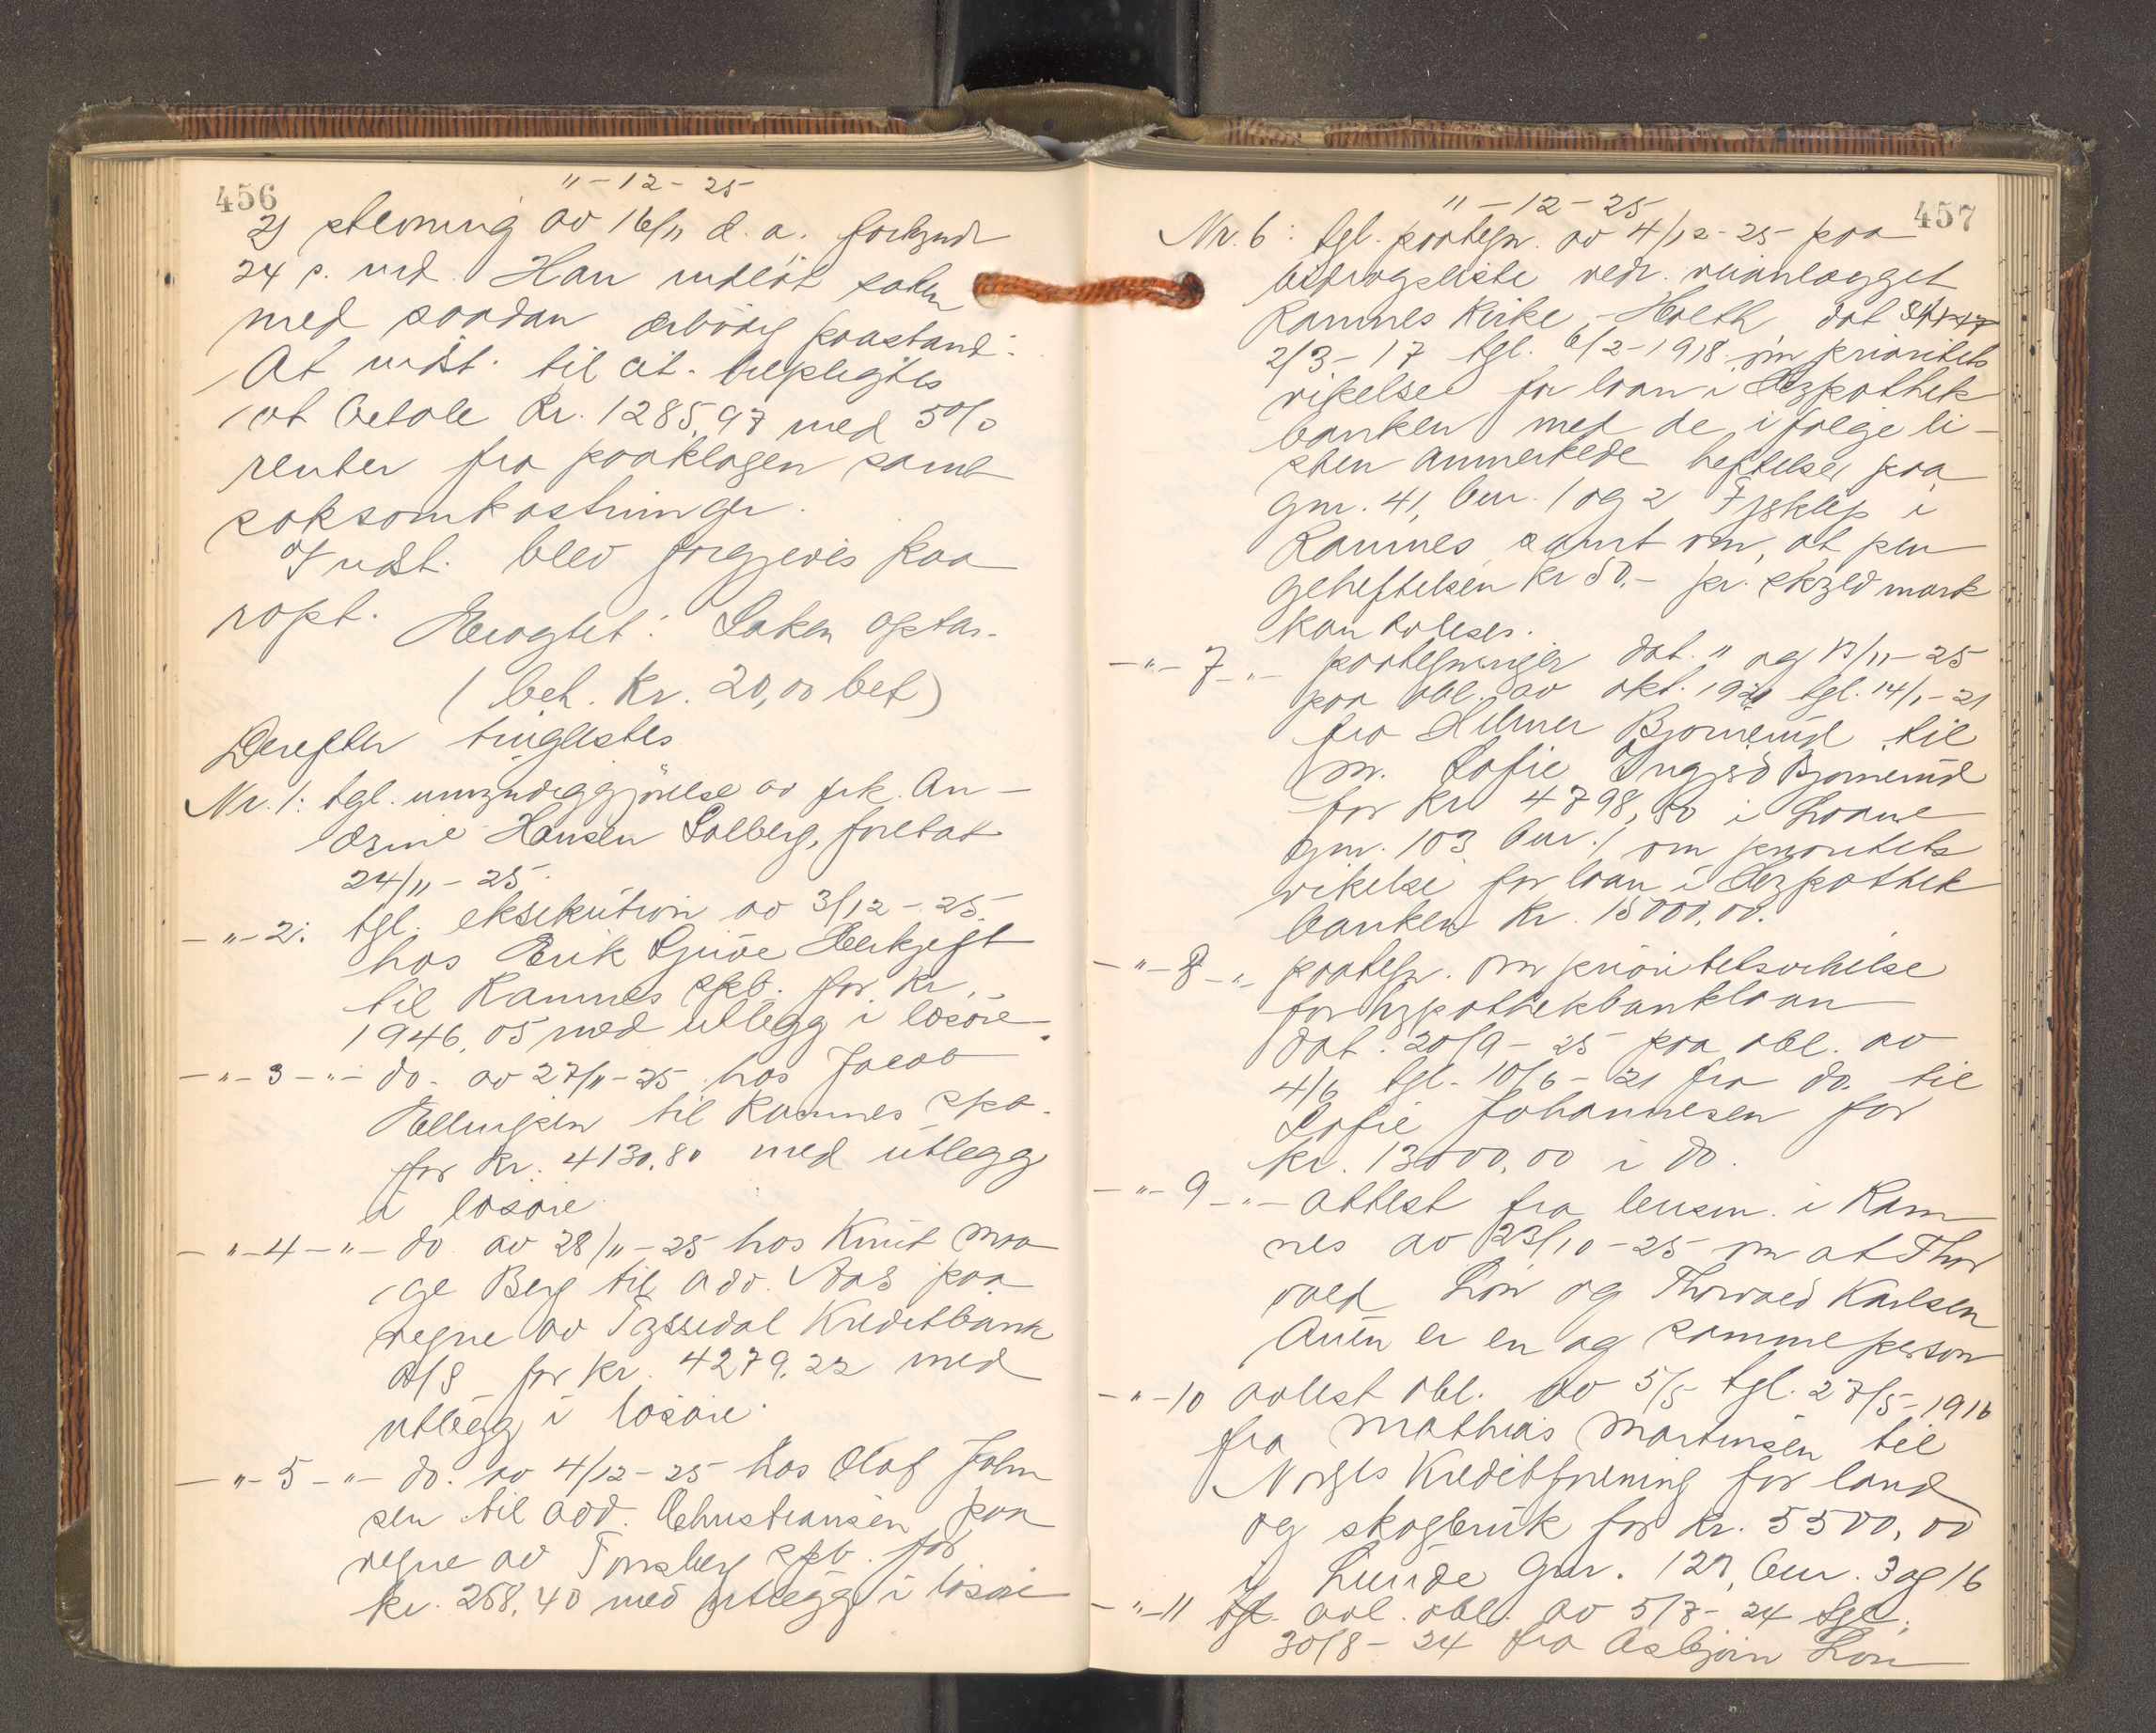 456
11-12-25
2) stevning av 16/11 d. a. forkyndt
24 s. md. Han indlot saken
med saadan ærbødig paastand:
At indst. til cit. tilpligtes
at betale Kr. 1285,97 med 5%
renter fra paaklagen samt
saksomkostninger.
Indst. blev forgjeves paa
ropt.
Eragtet: Saken optas.
(beh. Kr. 20,00 bet)
Derefter tinglæstes
Nr. 1: tgl. umyndiggjørelse av frk. An-
drine Hansen Solberg, foretat
24/11-25.
-"-2: tgl. eksekution av 3/12-25
hos Erik Gjuve Herkjeft
til Ramnes spb. for Kr.
1946,05 med utlegg i løsøre.
-"-3-"- do. av 27/11-25 hos Jacob
Ellingsen til Ramnes spb.
for Kr. 4130,80 med utlegg
i løsøre
-"-4-"- do av 28/11-25 hos Knut Maa
ge Berg til adv. Aas paa
regne av Tyssedal Kreditbank
A/S for Kr. 4279.22 med
utlegg i løsøre.
-"-5-"- do. av 4/12-25 hos Olaf John
sen til adv. Christiansen paa
regne av Tønsberg spb. for
kr. 258,40 med utlegg i løsøre
457
11-12-25
Nr. 6: tgl. paategn. av 4/12-25 paa
bidragsliste vedr. veianlægget
Ramnes Kirke - Holth dat
2/3-17 tgl. 6/2-1918 om prioritets
vikelse for laan i Hypothek
banken med de i følge li-
sten anmerkede heftelser paa
gnr. 41, bnr. 1 og 2 i
Ramnes samt om, at pen
geheftelsen kr 50.- pr. skyldmark
kan avløses.
-"-7-"- paategninger dat. 11 og 13/11-25
paa obl. av okt. 1920 tgl. 14/1-21
fra Hilmer Bjørnerud til
m. Sofie Ingrid Bjørnerud
for kr 4798,80 i Loane
gnr. 103 bnr. 1 om prioritets
vikelse for laan i Hypothek
banken Kr. 15000,00.
-"-8-"- paategn. om prioritetsvikelse
for hypothekbanklaan
dat. 20/9-25 paa obl. av
4/6 tgl. 10/6-21 fra do. til
Sofie Johannesen for
kr. 13000,00 i do.
-"-9-"- attest fra lensm. i Ram
nes av 23/10-25 om at Thor
vald Løv og Thorvald Karlsen
Auen er en og samme person
-"-10 avlæst obl. av 5/5 tgl. 27/5-1916
fra Mathias Martinsen til
Norges Kreditforening for land
og skogbruk for kr. 5500,00
i Lunde gnr. 127, bnr. 3 og 16
-"-11 avl. obl. av 5/8-24 tgl.
30/8-24 fra Asbjørn Løv